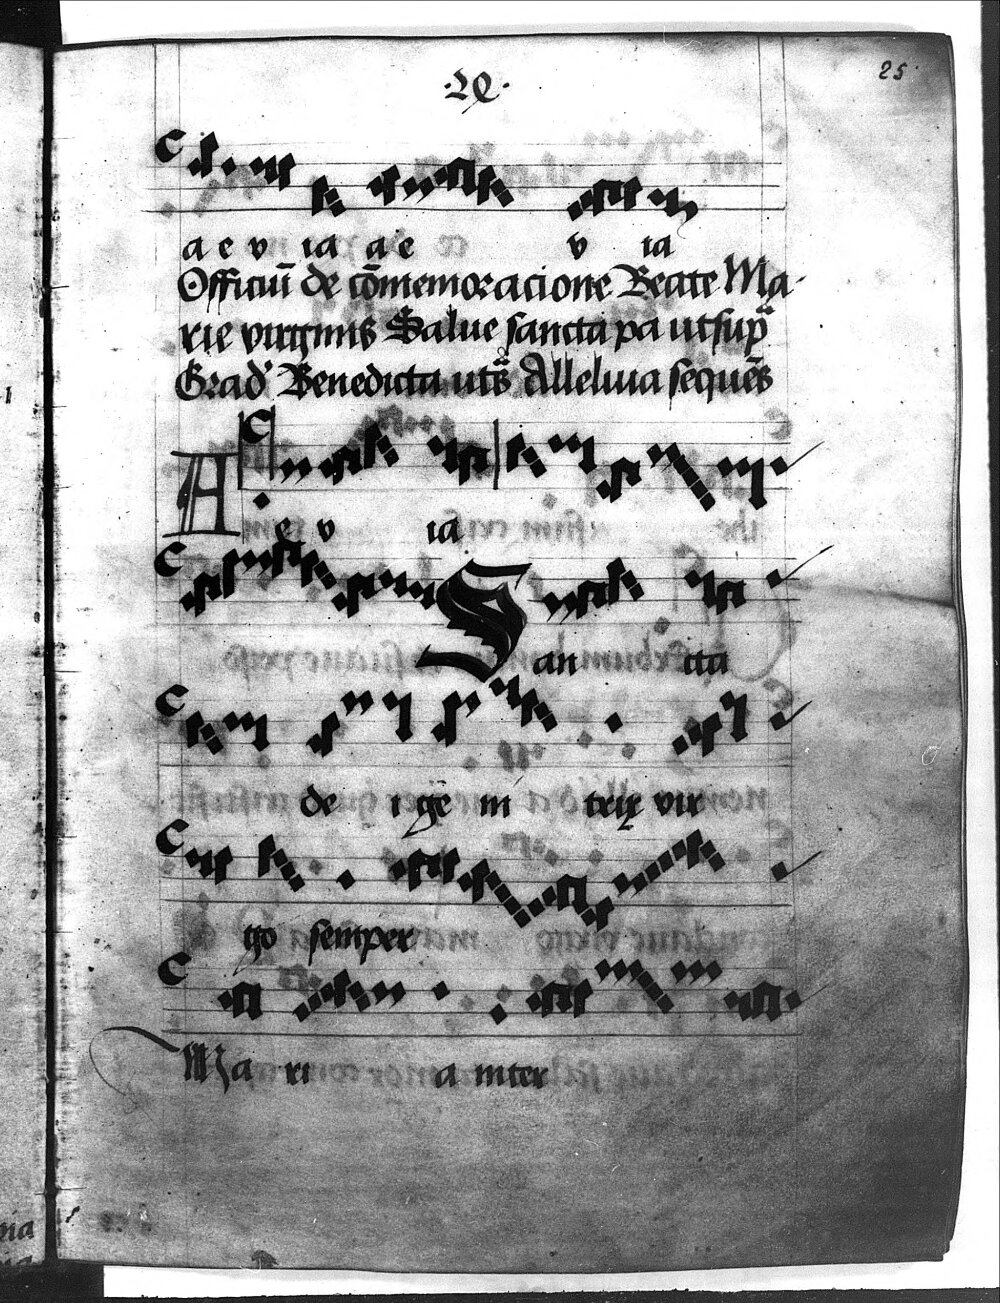 25
a e v ia a e v ia
Officiū de cōmemoracione Beate Ma
rie virginis Salue sancta pa ut sup
Grad Benedicta uts Alleluia sequēs
A e v ia
Sancta
de i gē ni trix vir
go semper
Ma ri a inter